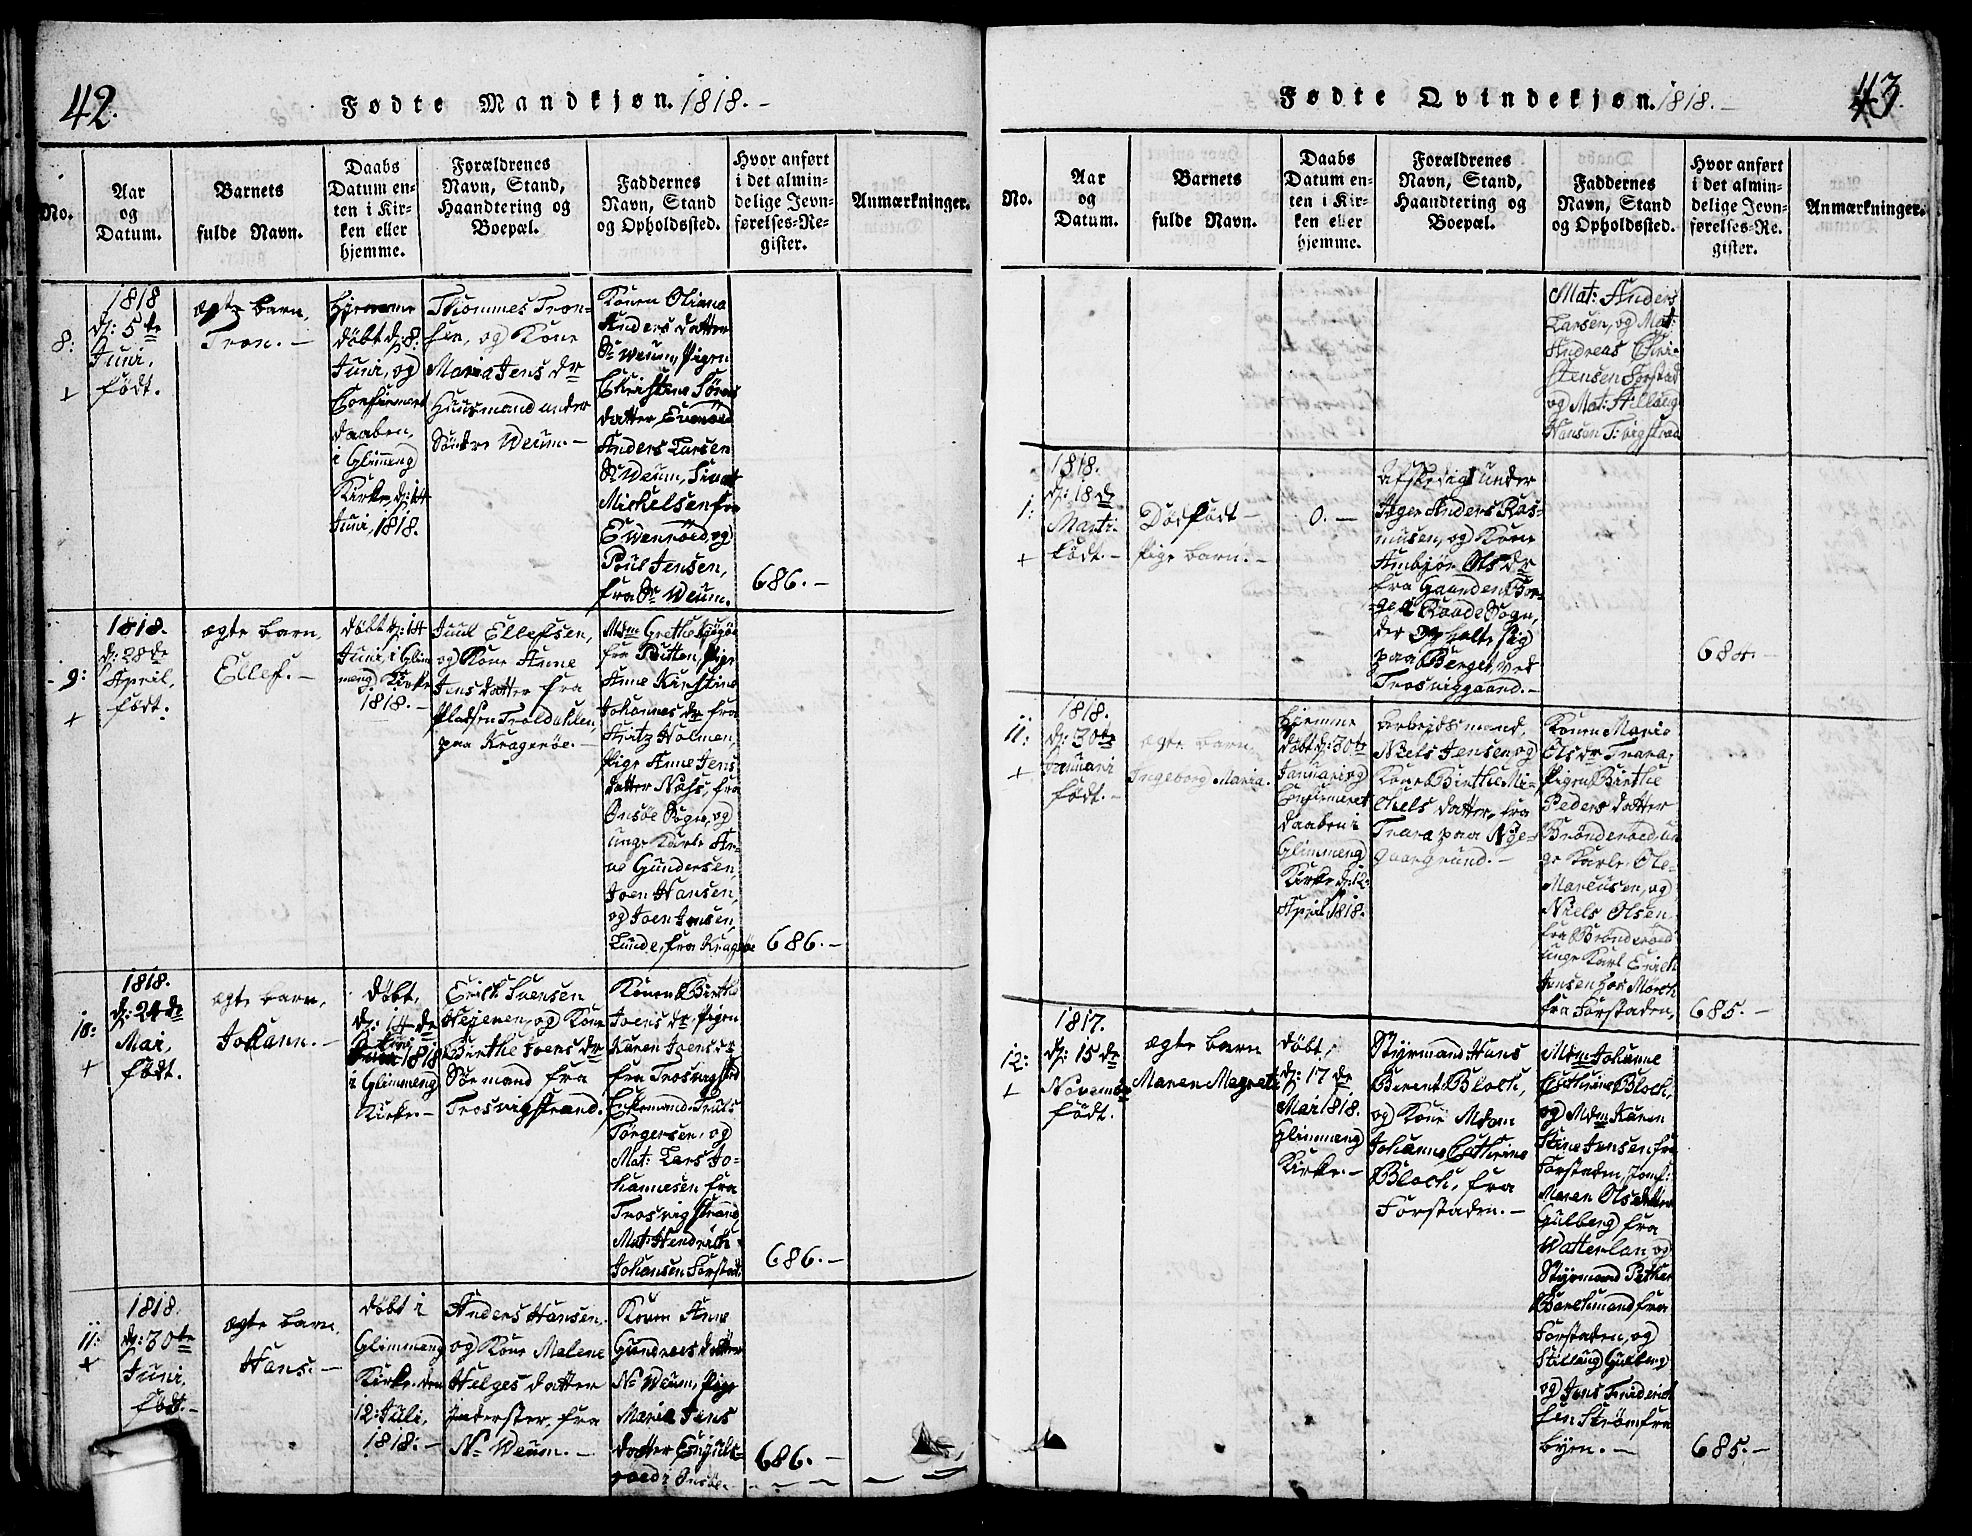 42.
Fødte Mandkjøn. 1818. –
No.
Aar
og
Datum.
Barnets
fulde Navn.
Daabs
Datum en-
ten i Kir-
ken eller
hjemme.
Forældrenes
Navn, Stand,
Haandtering og
Boepæl.
Faddernes
Navn, Stand
og Opholdssted.
Hvor anført
i det almin-
delige Jevn-
førelses-Re-
gister.
Anmærkninger.
8:
+
1818
d: 5te
Juni,
født.
ægte barn,
Tron. –
Hjemme
døbt d: 8:
Juni, og
Confirmert
daaben,
i Glimmeng
Kirke, d: 14
Juni, 1818.
Thommes Tron-
sen, og Kone
Maria Jens dr
Huusmand under
Søndre Weum. –
Konen Oliana
Anders datter
Sr Weum, Pigen
Christine Sørens
datter,
Anders Larsen
Sr Weum,
Michelsen fra
og
Poul Jensen,
fra Sr Weum.
686. –
9:
+
1818.
d: 28de
April,
født.
ægte barn,
Ellef. –
døbt d: 14
Juni, i Glim
meng Kirke
1818. –
Juul Ellefsen,
og Kone Anne
Jens datter fra
Pladsen Troldahlen,
paa Kragerøe. –
Mdm Grethe
fra Putten, Pige
Anne Kirstine
Johannes dr fra
Fritz Holmen,
Pige Anne Jens
datter Næss, fra
Onsøe Sogn, og
unge Karle Ar-
ne Gundersen,
Joen Hansen,
og Joen Jensen,
Lunde, fra Kragerøe
686. –
10:
+
1818.
d: 24de
Mai,
født.
ægte barn,
Johann. –
Døbt,
d: 14de
Juni 1818
i Glimmeng
Kirke. –
Erich Svensen
Hejeren, og Kone
Birthe Joens dr
Søemand fra
Trosvigstrand.
Konen Birthe
Joens dr Pigen
Karen Joens dr
fra Trosvigstrd
Enkemand Truls
Torgersen, og
Mat: Lars Jo-
hannesen fra
Trosvigstrand
Mat: Hendrich
Johansen Forstad.
686. –
11:
+
1818.
d: 30te
Juni,
født. –
ægte barn,
Hans. –
døbt i
Glimmeng
Kirke den
12: Juli,
1818: –
Anders Hansen,
og Kone Malene
Helges datter
Inderster, fra
Nr Weum. –
Konen Anne
Gundersdatter
Nr Weum, Pige
Maria Jens
datter
Onsøe.
686. –
43.
Fødte Qvindekjøn. 1818. –
No.
Aar
og
Datum.
Barnets
fulde Navn.
Daabs
Datum en-
ten i Kir-
ken eller
hjemme.
Forældrenes
Navn, Stand,
Haandtering og
Boepæl.
Faddernes
Navn, Stand
og Opholdssted.
Hvor anført
i det almin-
delige Jevn-
førelses-Re-
gister.
Anmærkninger.
Mat: Anders
Larsen, og Mat:
Andreas Chri-
stensen Forstad
og Mat: Stillaug
Hansen T:vigstrad
1:
+
1818.
d: 18de
Marti.
født. –
Dødfødt –
Pige barn. –
0. –
Afskediget under
Jæger Anders Ras-
musen, og Kone
Ambjør Ols dr
fra Gaarden Tor-
ge i Raade Sogn,
der opholte sig
paa Berget, ved
Trosviggaard. –
684. –
11:
+
1818.
d: 30te
Januari
født. –
ægte barn,
Ingeborg Maria.
Hjemme
døbt d: 30te
Januari og
Confirmeret
daaben i
Glimmeng
Kirke d: 12
April 1818.
Arbejdsmand,
Niels Jensen og
Kone Birthe Mi-
chels datter, fra
Trara paa Nye-
gaargrund. –
Konen Maria
Ols dr Trara,
Pigen Birthe
Peders datter
Brønderoed, un
ge Karle, Ole
Marcusen, og
Niels Olsen
fra Brønderoed
unge Karl Erich
Jensen hos Morch
fra Forstaden,
685. –
12:
+
1817.
d: 15de
Novembr
født.
ægte barn
Maren Magreta
døbt,
d: 17de
Mai 1818.
Glimmeng
Kirke. –
Styrmand Hans
Berent Bloch,
og Kone Mdam
Johanne Cathrine
Bloch, fra
Forstaden. –
Mdm Johanne
Cathrine Bloch,
og Mdm Karen
Stine Jensen fra
Forstaden, Jomf:
Maren Olsdatter
Gulberg fra
Watterlan, og
Styrmand Petter
fra
Forstaden, og
Stillaug Gulberg
og Jens Friderich
sen Strøm fra
byen. –
685. –